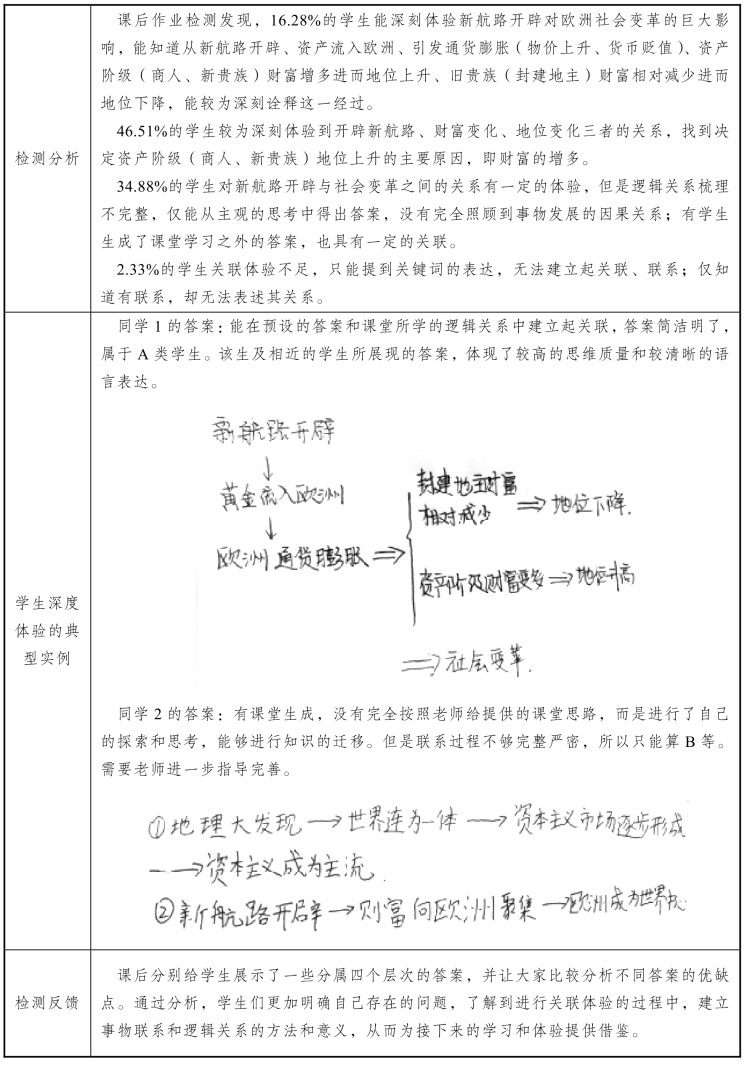 检测分析
课后作业检测发现，16.28%的学生能深刻体验新航路开辟对欧洲社会变革的巨大影
响，能知道从新航路开辟、资产流入欧洲、引发通货膨胀（物价上升、货币贬值）、资产
阶级（商人、新贵族）财富增多进而地位上升、旧贵族（封建地主）财富相对减少进而
地位下降，能较为深刻诠释这一经过。
46.51%的学生较为深刻体验到开辟新航路、财富变化、地位变化三者的关系，找到决
定资产阶级（商人、新贵族）地位上升的主要原因，即财富的增多。
34.88%的学生对新航路开辟与社会变革之间的关系有一定的体验，但是逻辑关系梳理
不完整，仅能从主观的思考中得出答案，没有完全照顾到事物发展的因果关系；有学生
生成了课堂学习之外的答案，也具有一定的关联。
2.33%的学生关联体验不足，只能提到关键词的表达，无法建立起关联、联系；仅知
道有联系，却无法表述其关系。
学生深度
体验的典
型实例
同学 1 的答案：能在预设的答案和课堂所学的逻辑关系中建立起关联，答案简洁明了，
属于 A 类学生。该生及相近的学生所展现的答案，体现了较高的思维质量和较清晰的语
言表达。
新航路开辟
↓
黄金流入欧洲
↓
欧洲通货膨胀 ⇒
封建地主财富
相对减少 ⇒ 地位下降.
资产阶级财富变多 ⇒ 地位升高
⇒ 社会变革.
同学 2 的答案：有课堂生成，没有完全按照老师给提供的课堂思路，而是进行了自己
的探索和思考，能够进行知识的迁移。但是联系过程不够完整严密，所以只能算 B 等。
需要老师进一步指导完善。
①地理大发现 → 世界连为一体 → 资本主义市场逐步形成
→ 资本主义成为主流.
②新航路开辟 → 财富向欧洲聚集 → 欧洲成为世界中心
检测反馈
课后分别给学生展示了一些分属四个层次的答案，并让大家比较分析不同答案的优缺
点。通过分析，学生们更加明确自己存在的问题，了解到进行关联体验的过程中，建立
事物联系和逻辑关系的方法和意义，从而为接下来的学习和体验提供借鉴。